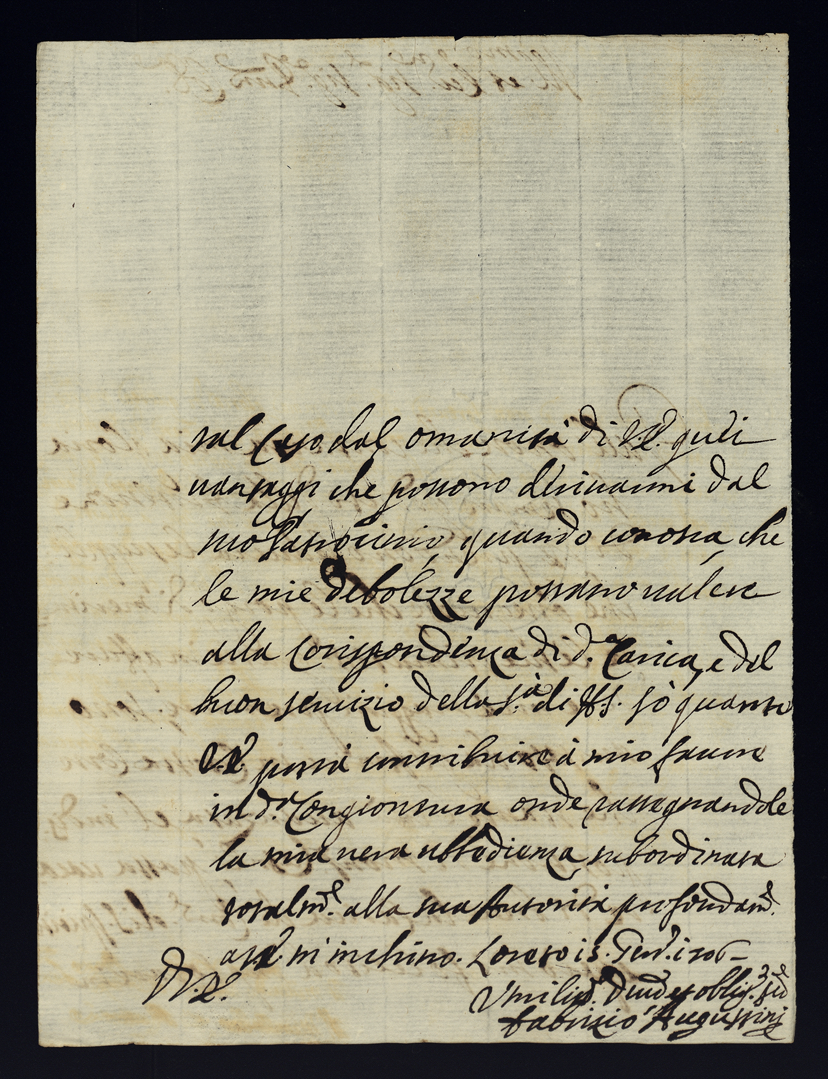 tal caso dal omanità di V.E. quei
vantaggi che possono derivarmi dal
suo Patrocinio, quando conosca che
le mie debolezze possano valere
alla Corispondenza di d.ª Carica, e del
buon servizio della S.ª di N.S. sò quanto
V.E. possa contribuire à mio favore
in d.ª Congiontura onde rassegnandole
la mia vera ubbidienza, subordinata
totalm.e alla sua Autorità profondam.e
a V.E. m'inchino. Loreto 15. Gen.o 1706
D.V.E.
Umiliss.o Devot.o et obblig.mo Ser.e
Fabrizio Augustini